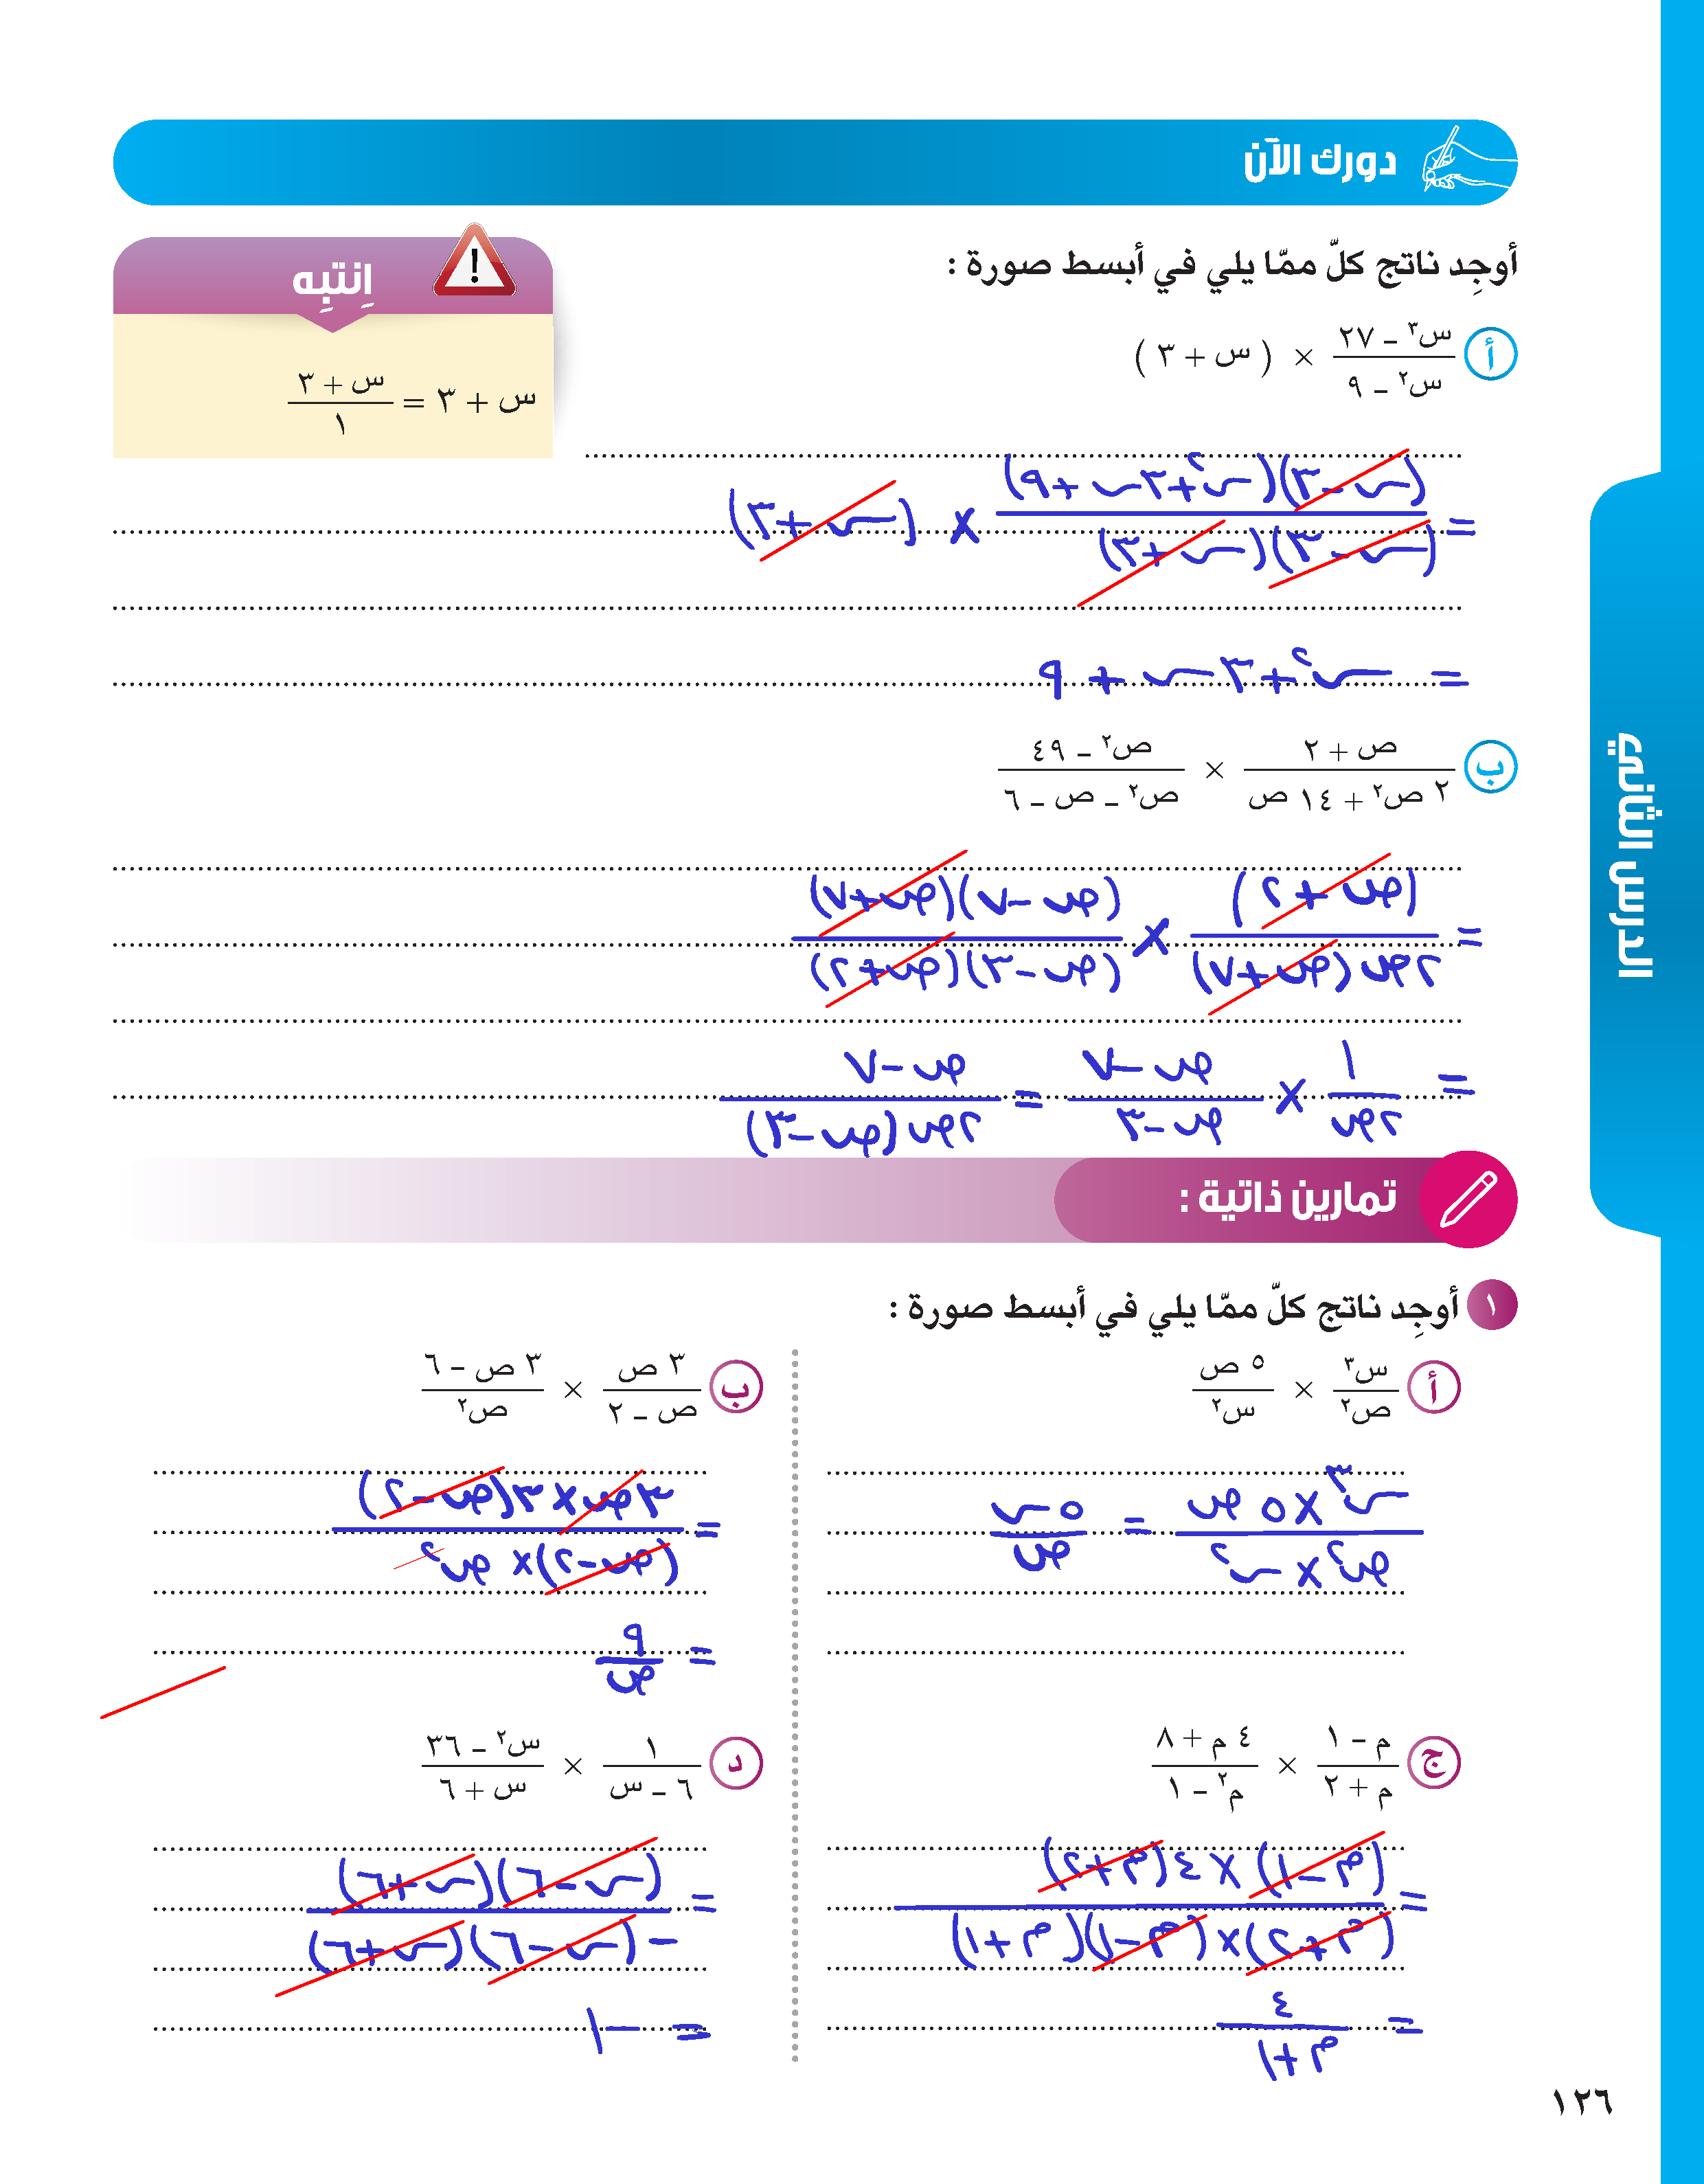 دورك الآن
أوجِد ناتج كلّ ممّا يلي في أبسط صورة :
اِنتبِه
س + ٣ = (س + ٣)/١
أ (س³ – ٢٧)/(س² – ٩) × ( س + ٣ )
= (س – ٣)(س² + ٣س + ٩)/(س – ٣)(س + ٣) × (س + ٣)
= س² + ٣س + ٩
ب (ص + ٢)/(٢ ص² + ١٤ ص) × (ص² – ٤٩)/(ص² – ص – ٦)
= (ص + ٢)/٢ص(ص + ٧) × (ص – ٧)(ص + ٧)/(ص – ٣)(ص + ٢)
= ١/٢ص × (ص – ٧)/(ص – ٣) = (ص – ٧)/٢ص(ص – ٣)
الدرس الثاني
تمارين ذاتية :
١ أوجِد ناتج كلّ ممّا يلي في أبسط صورة :
أ س³/ص² × ٥ ص/س²
س³ × ٥ ص/ص² × س² = ٥ س/ص
ب ٣ ص/(ص – ٢) × (٣ ص – ٦)/ص²
= ٣ص × ٣(ص – ٢)/(ص – ٢) × ص²
= ٩/ص
ج (م – ١)/(م + ٢) × (٤ م + ٨)/(م² – ١)
= (م – ١) × ٤(م + ٢)/(م + ٢) × (م – ١)(م + ١)
= ٤/(م + ١)
د ١/(٦ – س) × (س² – ٣٦)/(س + ٦)
= (س – ٦)(س + ٦)/–(س – ٦)(س + ٦)
= –١
١٢٦